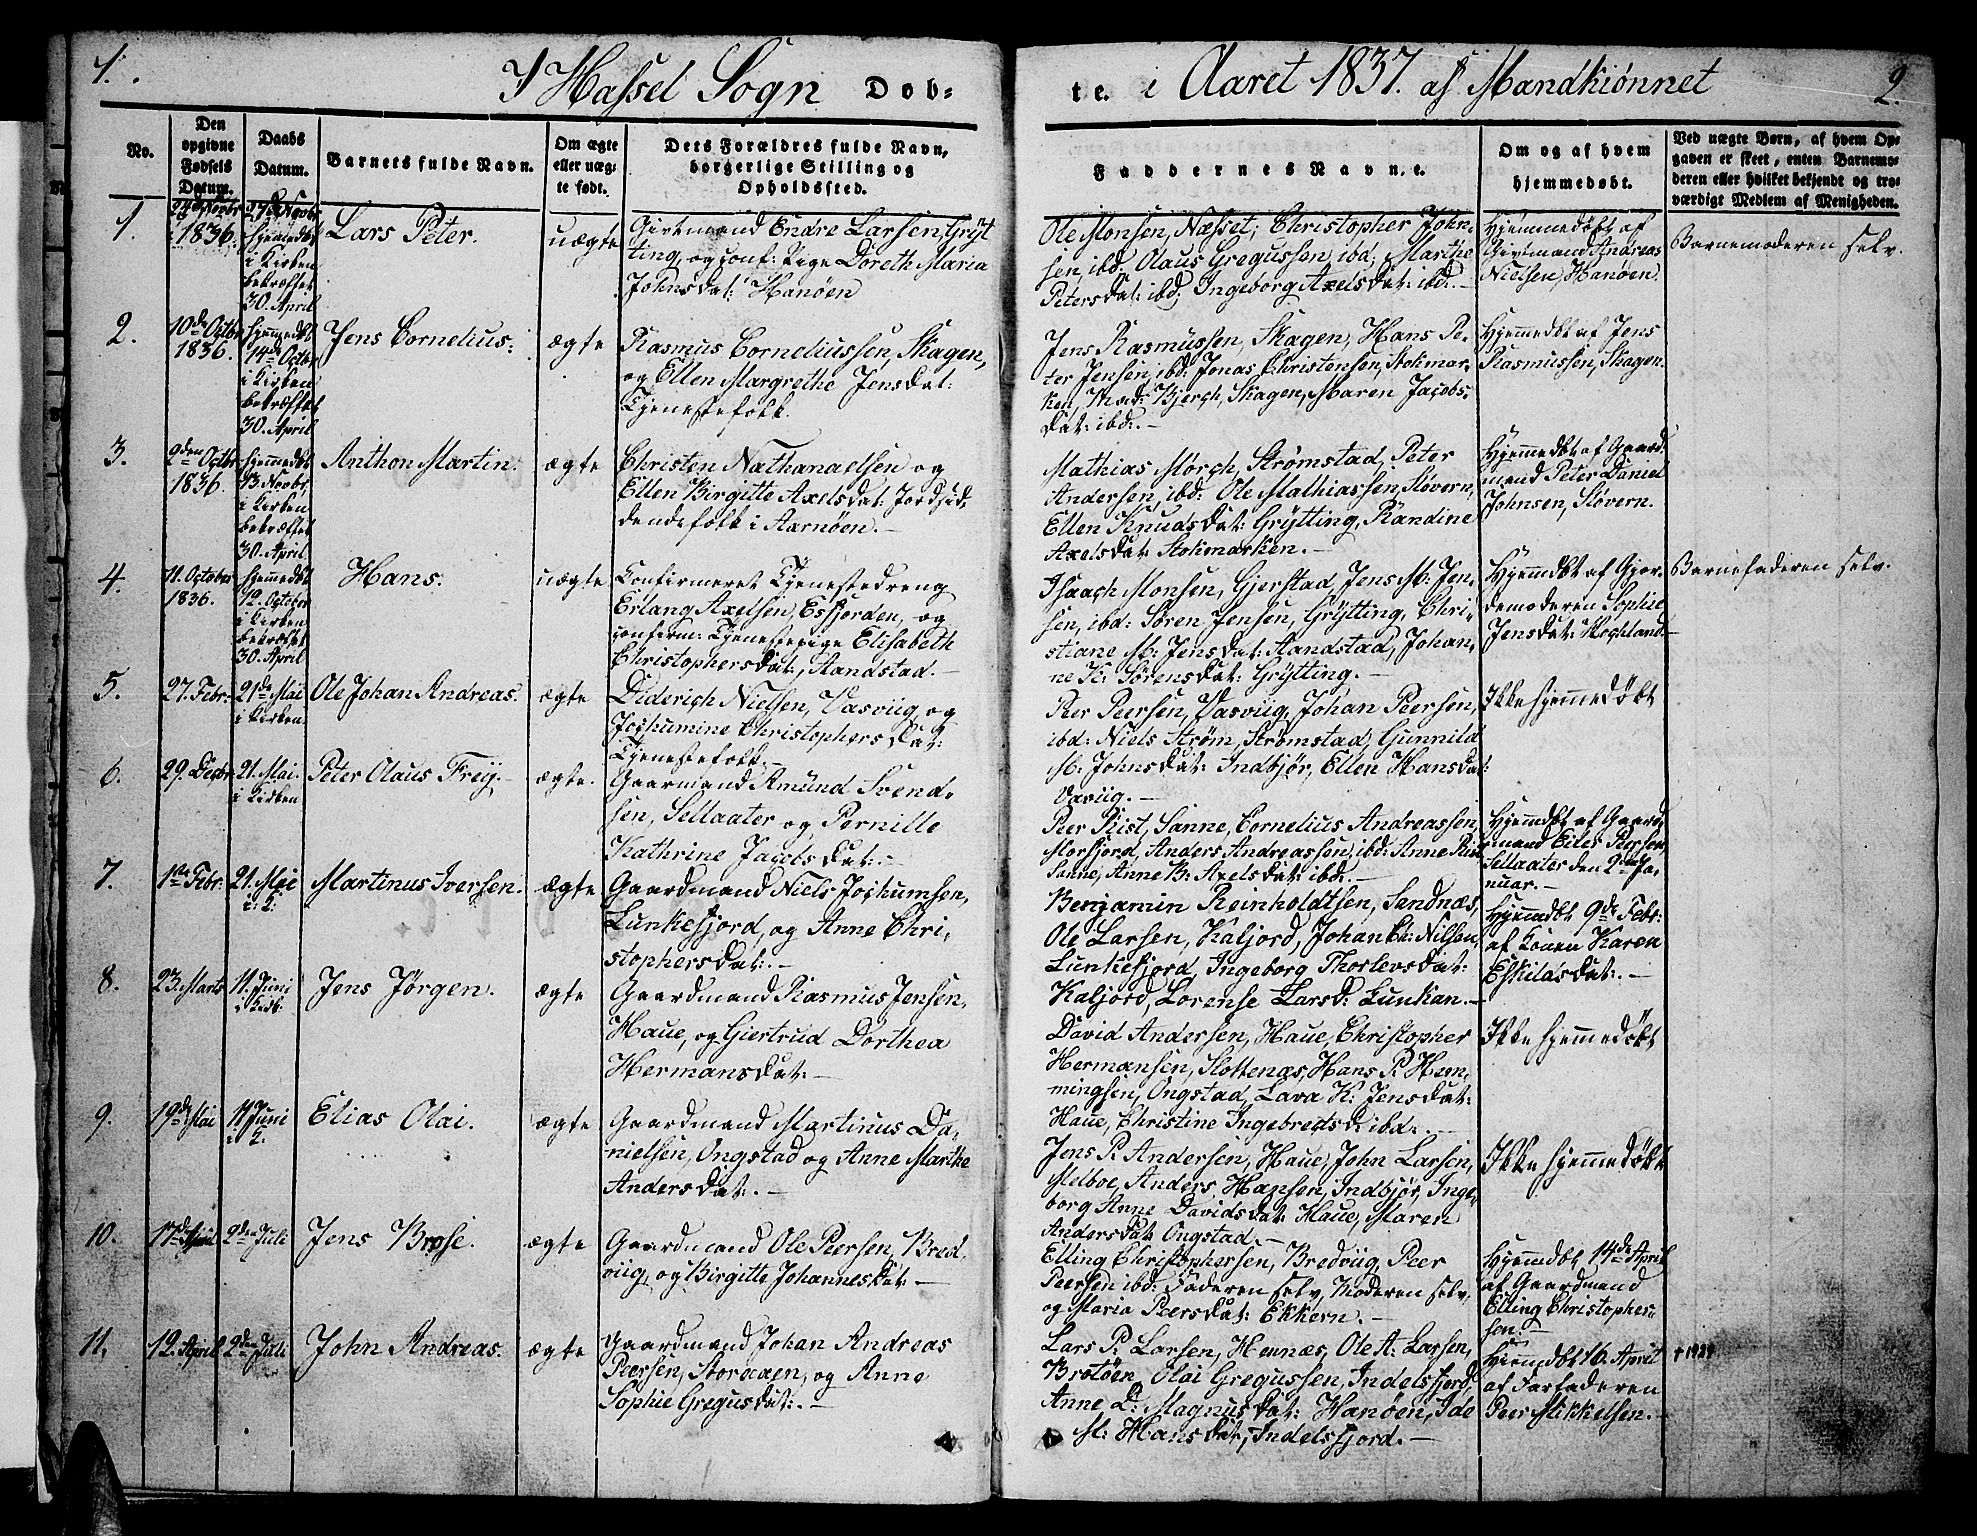 1.
I Hassel Sogn Dob-
te. i Aaret 1837. af Mandkiønnet
2.
No.
Den
opgivne
Fødsels
Datum.
Daabs
Datum.
Barnets fulde Navn.
Om ægte
eller uæg-
te født.
Dets Forældres fulde Navn,
borgerlige Stilling og
Opholdssted.
Faddernes Navn, e.
Om og af hvem
hjemmedøbt.
Ved uægte Børn, af hvem Op-
gaven er skeet, enten Barnemo-
deren eller hvilket bekjendt og tro-
værdigt Medlem af Menigheden.
1.
1836.
hjemmedøbt
i Kirken
bekræftet
30. April
Lars Peter.
uægte
Givtmand Endre Larsen, Gryt
ting, og conf: Pige Doreth Maria
Johnsdat: Hanøen
Ole Monsen, Næsset; Christopher John-
sen, ibd: Olaus Gregussen, ibd; Marthe
Petersdat: ibd; Ingeborg Axelsdat: ibd.-
Hjemmedøbt af
Givtmand Andreas
Nielsen, Hanøen.
Barnemoderen selv.
2.
10de Octbr
1836.
hjemmedøbt
14de Octbr
i Kirken
bekræftet
30. April
Jens Cornelius.
ægte
Rasmus Corneliussen, Skagen,
og Ellen Margrethe Jensdat:
Tjenestefolk.
Jens Rasmussen, Skagen, Hans Pe-
ter Jensen, ibd: Jonas Christensen, Stokmar-
ken, Mad: Bjerch, Skagen, Maren Jacobs-
dat: ibd:.-
Hjemmedøbt af Jens
Rasmussen, Skagen.
3.
2den Octbr
1836.
hjemmedøbt
13 Novbr,
i Kirken
bekræftet
30. April
Anthon Martin.
ægte
Christen Nathanaelsen og
Ellen Birgitte Axelsdat: Jordsid-
dendefolk i Aarnøen.-
Mathias Mørch, Strømstad, Peter
Andersen, ibd: Ole Mathiassen, Støvern,
Ellen Knudsdat: Grytting, Randine
Axelsdat: Stokmarken.-
Hjemmedøbt af Gaard-
mand Peter Daniel
Johnsen, Støvern.
4.
11. October
1836.
hjemmedøbt
12. October
i Kirken
bekræftet
30. April
Hans.
uægte
Confirmeret Tjenestedreng
Erlang Axelsen, Esfjorden, og
confirm: Tjenestepige Elisabeth
Christophersdat:, Aandstad.-
Isaach Monsen, Gjerstad, Jens M: Jen-
sen, ibd: Søren Jensen, Grytting, Chri-
stiane M: Jensdat: Aandstad, Johan-
ne K: Sørensdat: Grytting.-
Hjemmdøbt af Gjor-
demoderen Sophie
Jensdat: Hochland.
Barnefaderen selv.
5.
27. Febr.
21de Mai
i Kirken
Ole Johan Andreas.
ægte
Diderich Nielsen, Vasviig og
Jochumine Christophersdat:
Tjenestefolk.-
Peer Peersen, Vasviig, Johan Peersen,
ibd: Niels Strøm, Strømstad, Gunnild
M: Johnsdat: Indbjør, Ellen Hansdat:
Vasviig.-
Ikke hjemmedøbt
6.
29. Decbr
21. Mai.
i Kirken
Peter Olaus Freij.
ægte.
Gaarmand Amund Svend-
sen, Sellaater og Pernille
Kathrine Jacobsdat:.-
Peer Rist, Sanne, Cornelius Andreassen,
Morfjord, Anders Andreassen, ibd: Anne Rist
Sanne, Anne B: Axelsdat: ibd:.-
Hjemmdøbt af Gaard-
mand Eiler Peersen
Sellaater den 2den Ja-
nuar.-
7.
1ste Febr.
21. Mai
i: 2:
Martinus Iversen.
ægte
Gaardmand Niels Jochumsen,
Lunkefjord, og Anne Chri-
stophersdat:.-
Benjamin Reinholdtsen, Sandnæs,
Ole Larsen, Kaljord, Johan Ch: Nilsen,
Lunkefjord, Ingeborg Thorlevsdat:
Kaljord, Lorense Larsd: Lunkan.-
Hjemmdøbt 9de Febr:
af Konen Karen
Eskildsdat:.-
8.
23. Marts
11. Juni
i Kirk:
Jens Jørgen.
ægte
Gaardmand Rasmus Jensen,
Haue, og Giertrud Dorthea
Hermansdat:-
David Andersen, Haue, Christopher
Hermansen, Slottenæs, Hans P: Hem-
mingsen, Ongstad, Lava K: Jensdat:
Haue, Christine Ingebretsd: ibd:.-
Ikke hjemmedøbt
9.
19de Mai
11 Juni
i 2:
Elias Olai.
ægte
Gaardmand Martinus Da-
nielsen, Ongstad og Anne Marthe
Andersdat:.-
Jens P: Andersen, Haue, John Larsen,
Melboe, Anders Hansen, Indbjør, Inge-
borg Anne Davidsdat: Haue, Maren
Andersdat: Ongstad.-
Ikke hjemmedøbt
10.
2den Juli
Jens Brose.
ægte
Gaardmand Ole Peersen, Bred-
viig, og Birgitte Johannesdat:-
Elling Christophersen, Bredviig, Peer
Peersen ibd: Faderen selv, Moderen selv,
og Maria Peersdat: Ekkern.-
Hjemmdøbt 14de April
af Gaardmand
Elling Christopher-
sen.-
11.
12. April
2den Juli
John Andreas.
ægte
Gaardmand Johan Andreas
Peersen, Storaaen, og Anne
Sophie Gregusdat:.-
Lars P: Larsen, Hennæs, Ole A: Larsen,
Brotøen, Olai Gregussen, Indelsfjord,
Anne D: Magnusdat: Hanøen, Ide
M: Hansdat:, Indelsfjord.-
Hjemmdøbt 16. April
af Farfaderen
Peer Mikkelsen.-